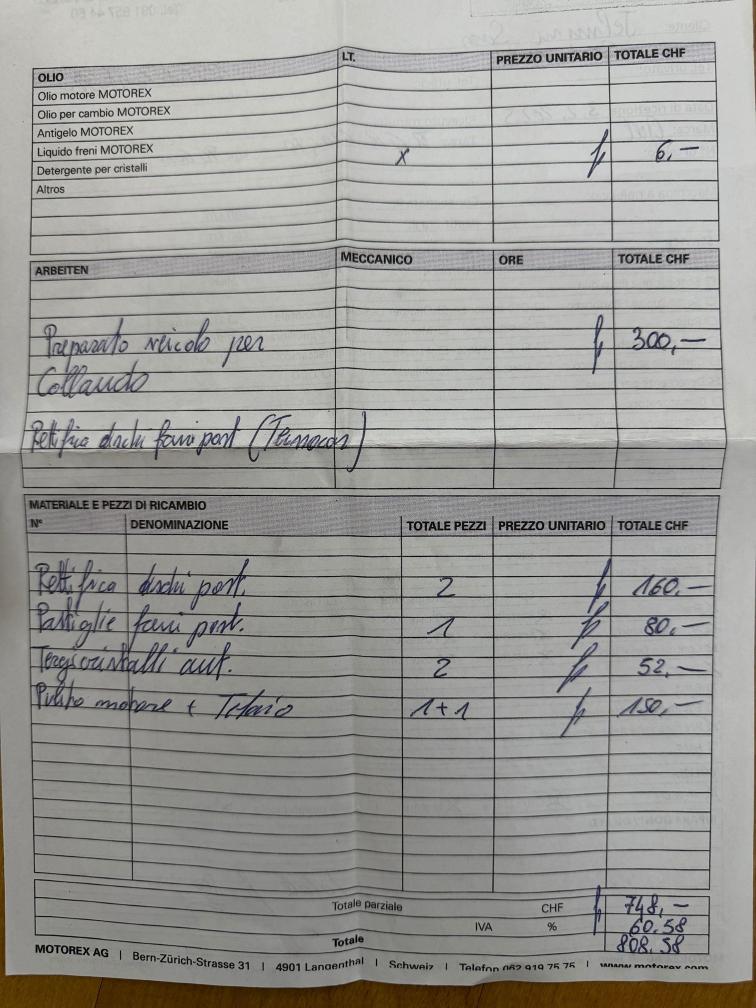 OLIO LT. PREZZO UNITARIO TOTALE CHF
Olio motore MOTOREX
Olio per cambio MOTOREX
Antigelo MOTOREX
Liquido freni MOTOREX x fr 6,—
Detergente per cristalli
Altros
ARBEITEN MECCANICO ORE TOTALE CHF
Preparato veicolo per fr 300,—
Collaudo
Rettifica dischi freni post
MATERIALE E PEZZI DI RICAMBIO
N° DENOMINAZIONE TOTALE PEZZI PREZZO UNITARIO TOTALE CHF
Rettifica dischi post. 2 fr 160.—
Pastiglie freni post. 1 fr 80,—
Tergicristalli ant. 2 fr 52,—
Pulito motore + Telaio 1+1 fr 150,—
Totale parziale CHF fr 748,—
IVA % 60.58
Totale 808.58
MOTOREX AG | Bern-Zürich-Strasse 31 | 4901 Langenthal | Schweiz | Telefon 062 919 75 75 | www.motorex.com